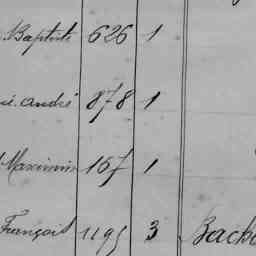 Baptiste 626 1
André 878 1
Maximin 167 1
François 1195 3